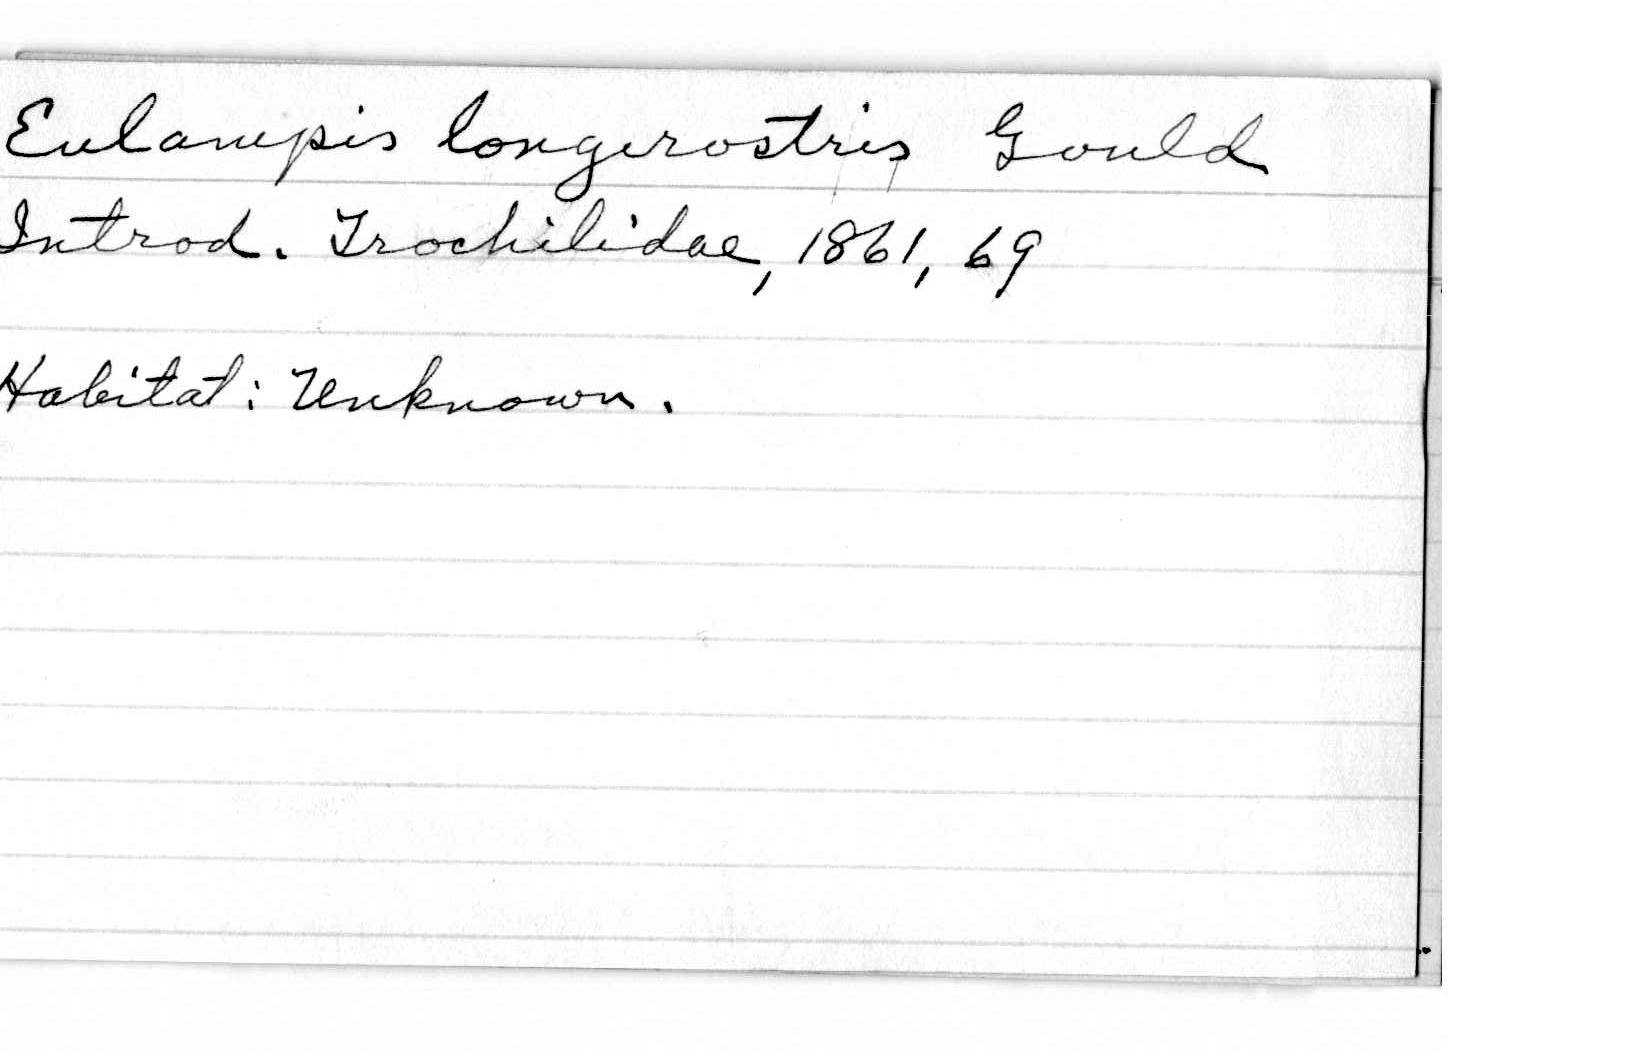 Eulampis longirostris Gould
Introd. Trochilidae, 1861, 69
Habitat: Unknown.